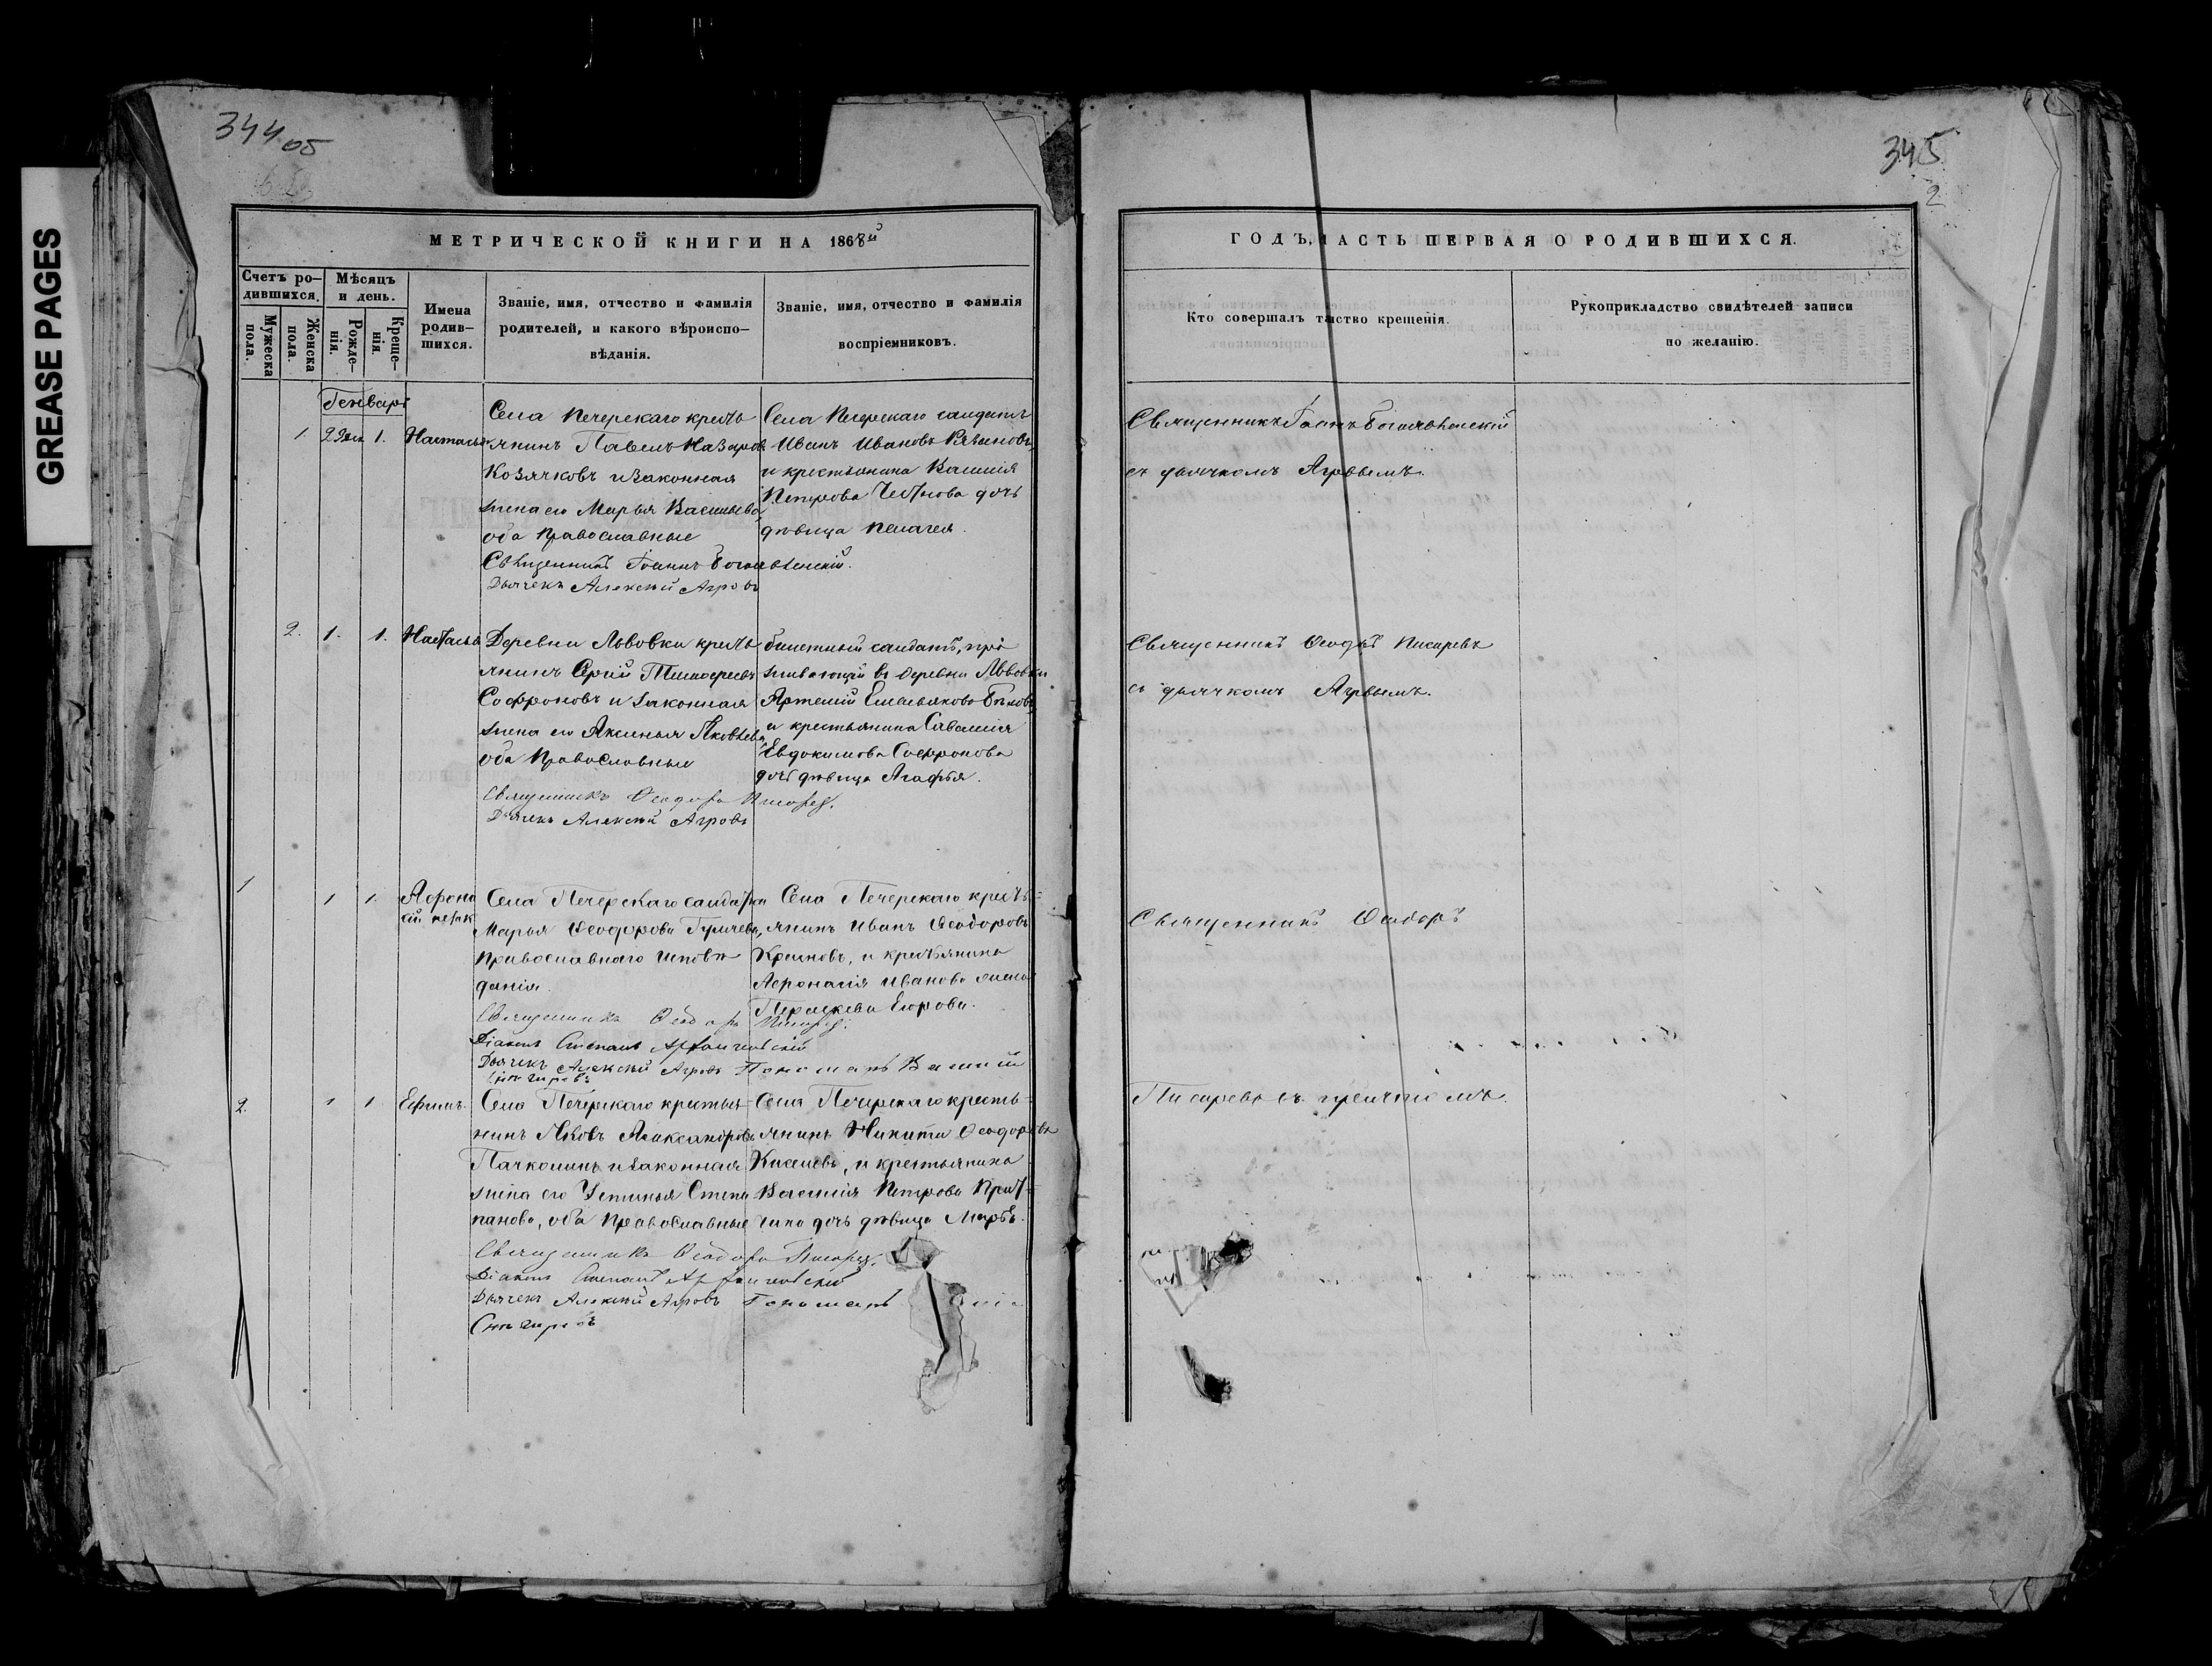 GREASE PAGES
344 об
345
2
МЕТРИЧЕСКОЙ КНИГИ НА 1868й
ГОДЪ, ЧАСТЬ ПЕРВАЯ О РОДИВШИХСЯ.
Счетъ ро-
дившихся.
Мужеска
пола.
Женска
пола.
Мѣсяцъ
и день.
Рожде-
нія.
Креще-
нія.
Имена
родив-
шихся.
Званіе, имя, отчество и фамилія
родителей, и какого вѣроиспо-
вѣданія.
Званіе, имя, отчество и фамилія
воспріемниковъ.
Кто совершалъ таинство крещенія.
Рукоприкладство свидѣтелей записи
по желанію.
Генварь
1. 1. Настасья
Села Печерскаго кресть
янинъ Павелъ Назаровъ
Козячковъ и законная
жена его Марья Васильева,
оба Православные
Священникъ Іоаннъ Богоявленскій.
Дьячекъ Алексѣй Агровъ
Села Печерскаго солдатъ
Иванъ Ивановъ
и крестьянина Василія
Петрова дочь
дѣвица Пелагея.
Священникъ Іоаннъ Богоявленскій
съ дьячкомъ Агровымъ.
2. 1. 1. Настасья
Деревни Львовки кресть
янинъ Сергій Тимофеевъ
Софроновъ и законная
жена его Аксинья Яковлева,
оба Православные
Священникъ Ѳеодоръ Писаревъ.
Дьячекъ Алексѣй Агровъ
билетный солдатъ, про
живающій въ деревни Львовки
Артемій Емельяновъ
и крестьянина Савелія
Евдокимова Софронова
дочь дѣвица Агафья.
Священникъ Ѳеодоръ Писаревъ
съ дьячкомъ Агровымъ.
1 1 1 Афона
сій
Села Печерскаго солдатка
Марья Ѳеодорова
Православнаго исповѣ
данія.
Священникъ Ѳеодоръ Писаревъ.
Діаконъ Степанъ Архангельскій
Дьячекъ Алексѣй Агровъ Пономарь Василій
Снѣгиревъ
Села Печерскаго кресть-
янинъ Иванъ Ѳеодоровъ
и крестьянина
Афонасія Иванова жена
Параскева Егорова.
Священникъ Ѳеодоръ
2. 1 1 Ефимъ.
Села Печерскаго крестья-
нинъ Яковъ Александровъ
Пачколинъ и законная
жена его Устинья Степа
панова, оба Православные
Священникъ Ѳеодоръ Писаревъ.
Діаконъ Степанъ Архангельскій
Дьячекъ Алексѣй Агровъ Пономарь
Снѣгиревъ
Села Печерскаго кресть-
янинъ Никита Ѳеодоровъ
Киселевъ, и крестьянина
Василія Петрова
дочь дѣвица Марѳа.
Писаревъ съ причтомъ.